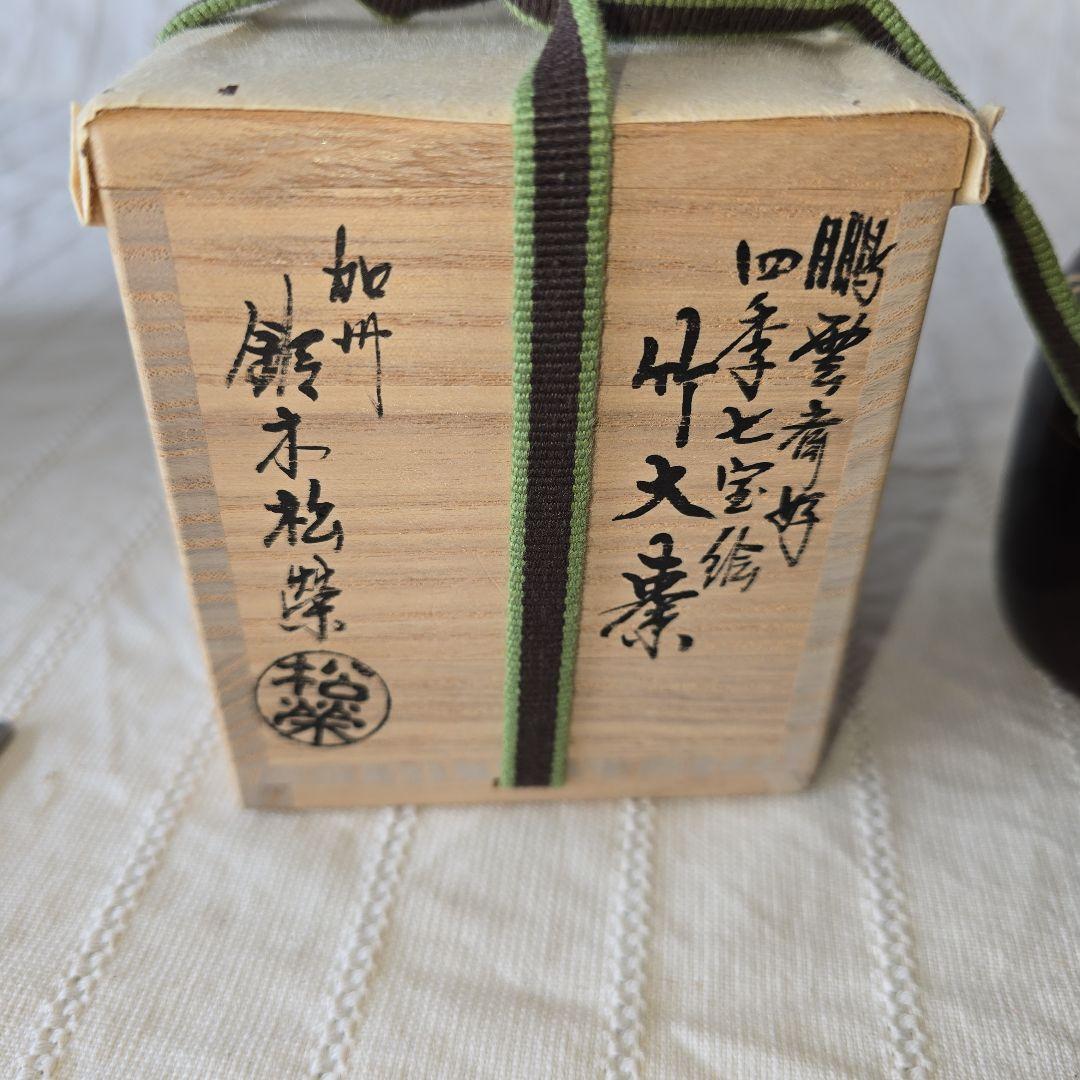 鵬雲斎好
四季七宝絵
竹大棗
加州
鈴木松榮
松榮